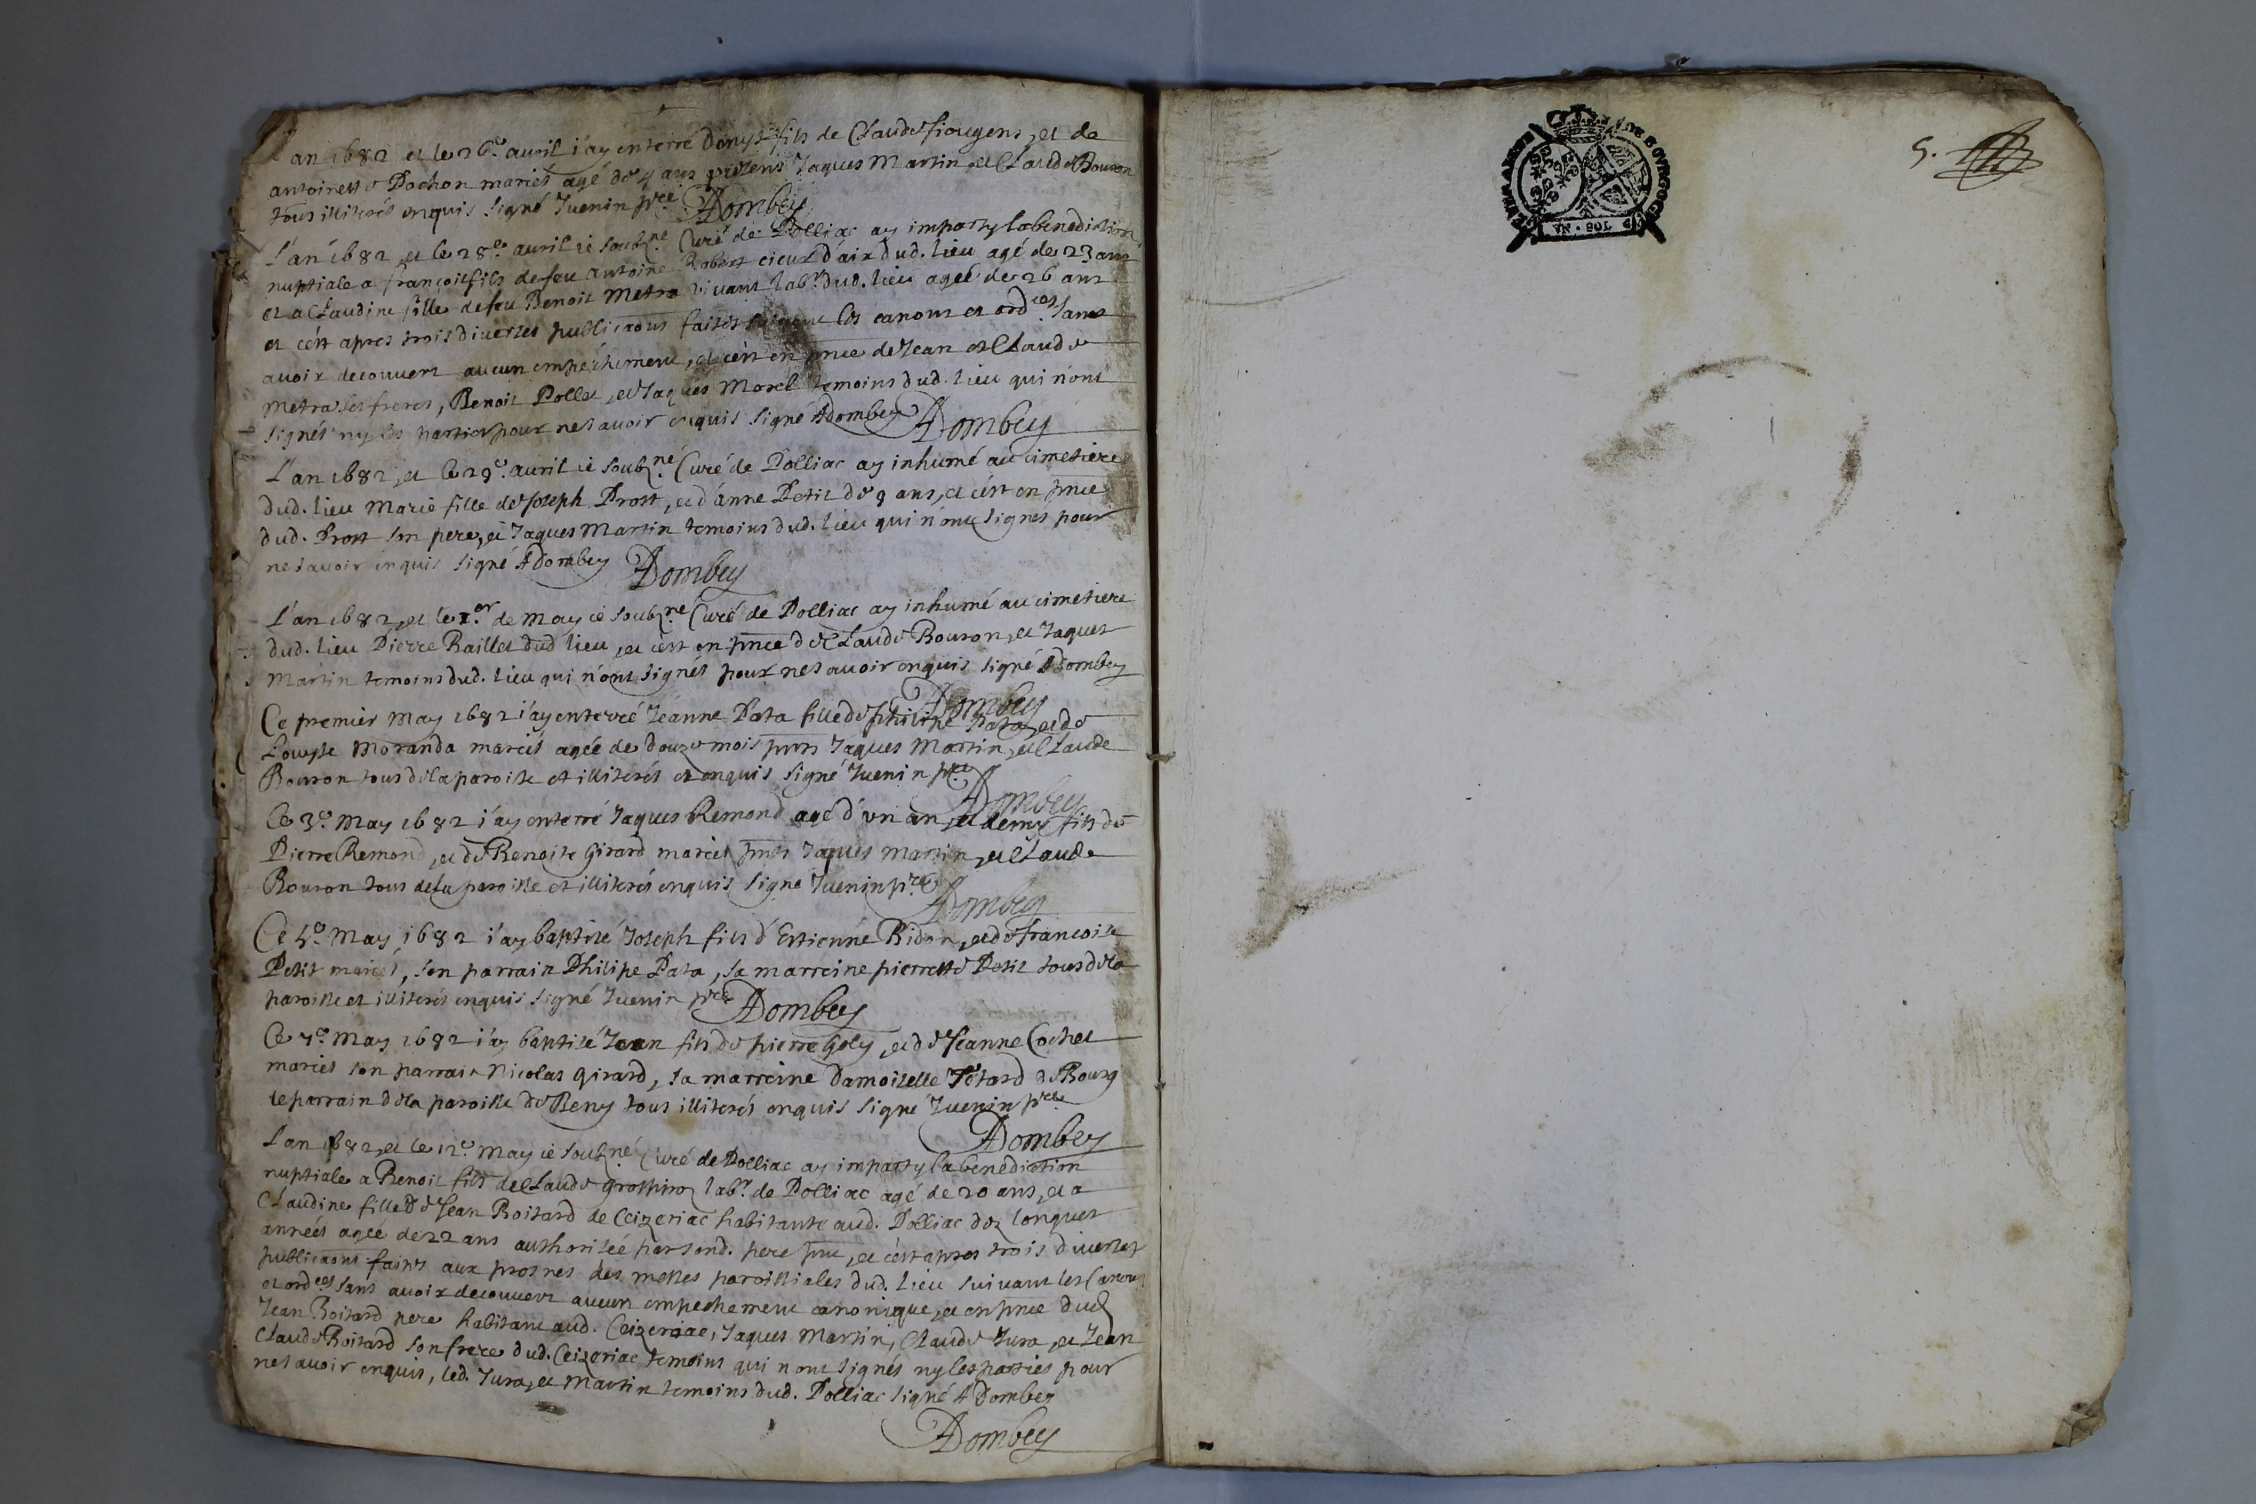 L'an 1682 et le 26.e auril i'ay enterré denys fils de Claude fiougens, et de
antoinette Pochon mariés agé de 4 ans presens Jaques Martin et Claude Bouron
tous illiterés enquis signé Juenin pre ADombey
L'an 1682, et le 28.e auril ie soubz.né Curé de Polliac ay imparty la benediction
nuptiale a françois fils de feu antoine Robert cieur d'aix dud. lieu agé de 23 ans
et a Claudine fille de feu Benoit Metra viuant lab.r dud. lieu ageé de 26 ans
et c'est apres trois diuerses publicaons faites suiuant les canons et ord.ces sans
auoir decouuert aucun empeschement, et c'est en pnce de Jean et Claude
Metra ses freres, Benoit Pollet, et Jaques Morel temoins dud. lieu qui n'ont
signés ny les parties pour ne sauoir enquis signé ADombey ADombey
L'an 1682, et le 29.e auril ie soubz.né Curé de Polliac ay inhumé au cimetiere
dud. lieu Marie fille de Joseph Prost, et d'anne Petit de 9 ans, et c'est en pnce
dud. Prost son pere, et Jaques Martin temoins dud. lieu qui n'ont signés pour
ne sauoir enquis signé ADombey ADombey
L'an 1682, et le 1.er de May ie soubz.né Curé de Polliac ay inhumé au cimetiere
dud. lieu Pierre Raillet dud lieu, et c'est en pnce de Claude Bouron, et Jaques
Martin temoins dud. lieu qui n'ont signés pour ne sauoir enquis signé ADombey
ADombey
Ce premier May 1682 i'ay enterré Jeanne Pata fille de philipe Pata, et de
Louyse Moranda mariés agée de douze mois pnts Jaques Martin, et Claude
Bouron tous de la paroisse et illiterés et enquis signé Juenin pre
ADombey
Ce 3.e May 1682 i'ay enterré Jaques Remond agé d'vn an, et demy fils de
Pierre Remond, et de Benoite Girard mariés pnts Jaques Martin, et Claude
Bouron tous de la paroisse et illiterés enquis signé Juenin pre
ADombey
Ce 5.e May 1682 i'ay baptisé Joseph fils d'Estienne Ridon, et de francoise
Petit mariés, son parrain Philipe Pata, sa marreine pierrette Petit tous de la
paroisse et illiterés enquis signé Juenin pre ADombey
Ce 7.e May 1682 i'ay baptisé Jean fils de pierre Goly, et de Jeanne Cochet
mariés son parrain Nicolas Girard, sa marreine Damoiselle de Bourg
le parrain de la paroisse de Beny tous illiterés enquis signé Juenin pre
ADombey
L'an 1682, et le 12.e May ie soubz.né Curé de Polliac ay imparty la benediction
nuptiale a Benoit fils de Claude lab.r de Polliac agé de 20 ans, et a
Claudine fille de Jean Boitard de Ceizeriac habitante aud. Polliac dez longues
années agée de 22 ans authorisée par sond. pere pnt, et c'est apres trois diuerses
publicaons faites aux prosnes des messes paroissiales dud. lieu suiuant les Canons
et ord.ces sans auoir decouuert aucun empechement canonique, et en pnce dud
Jean Boitard pere habitant aud. Ceizeriac, Jaques Martin, Claude Jura, et Jean
Claude Boitard son frere dud. Ceizeriac temoins qui n'ont signés ny les parties pour
ne sauoir enquis, led. Jura, et Martin temoins dud. Polliac signé ADombey
ADombey
DE BOVRGOGNE
VN · SOL
5.